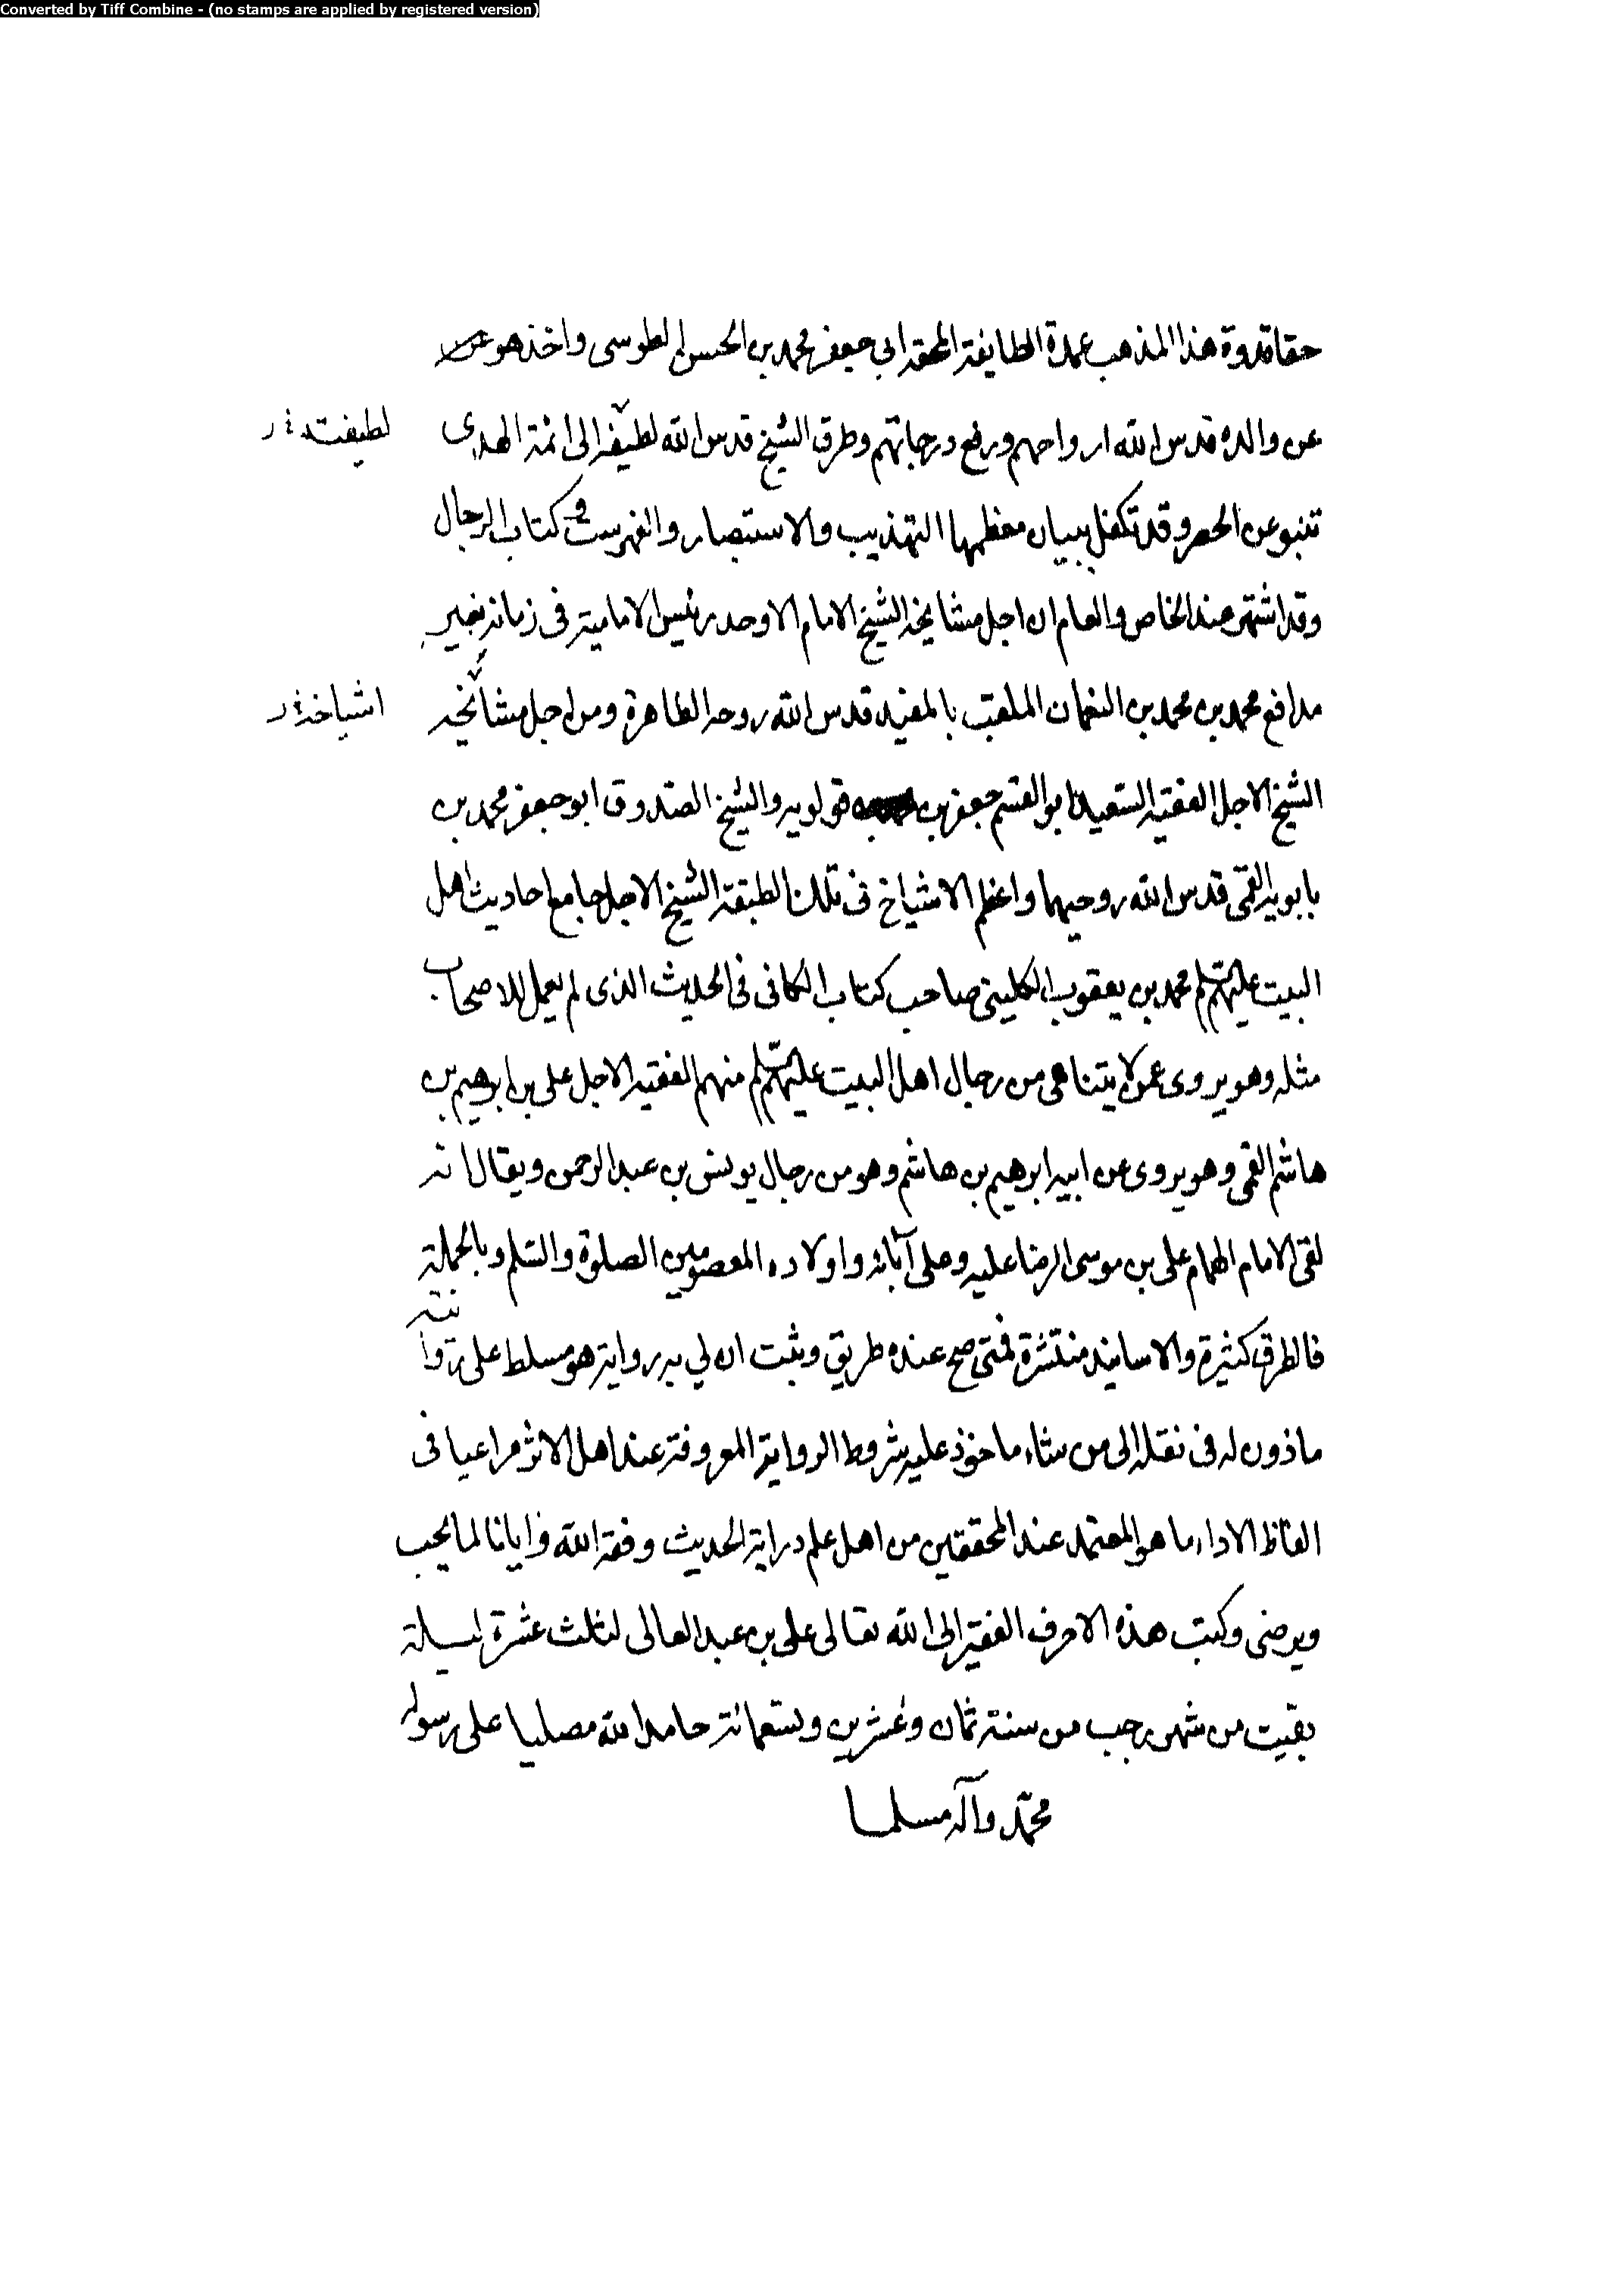 Converted by Tiff Combine - (no stamps are applied by registered version)
حقا قدوة هذا المذهب عمدة الطايفة المحقة ابي جعفر محمد بن الحسن الطوسى واخذ هو عن
عن والده قدس الله ارواحهم ورفع درجاتهم وطرق الشيخ قدس الله لطيفه الى ائمة الهدى
لطيفته
تنبو عن الحصر وقد تكفل ببيان معظمها التهذيب والاستبصار والفهرست و كتاب الرجال
وقد اشتهر عند الخاص والعام ان اجل مشايخه الشيخ الامام الاوحد رئيس الامامية فى زمانه بغير
مدافع محمد بن محمد بن النعمان الملقب بالمفيد قدس الله روحه الطاهرة ومن اجل مشائخه
اشياخه
الشيخ الاجل الفقيه السعيد ابو القسم جعفر بن قولويه والشيخ الصدوق ابو جعفر محمد بن
بابويه القمى قدس الله روحيهما واعظم الاشياخ فى تلك الطبقة الشيخ الاجل جامع احاديث اهل
البيت عليهم السلم محمد بن يعقوب الكلينى صاحب كتاب الكافى فى الحديث الذى لم يعمل للاصحاب
مثله وهو يروى عمن لا يتناهى من رجال اهل البيت عليهم السلم منهم الفقيه الاجل على بن ابرهيم بن
هاشم القمى وهو يروى عن ابيه ابرهيم بن هاشم وهو من رجال يونس بن عبد الرحمن ويقال انه
لقى الامام الهمام على بن موسى الرضا عليه وعلى آبائه واولاده المعصومين الصلوة والسلم وبالجملة
فالطرق كثيرة والاسانيد منتشرة فمتى صح عنده طريق وثبت ان لي به رواية هو مسلط على روايته
ماذون له فى نقله الى من شاء ماخوذ عليه شروط الرواية المعروفة عند اهل الاثر مراعيا فى
الفاظ الاداء ما هو المعتمد عند المحققين من اهل علم دراية الحديث وفقه الله وايانا لما يحب
ويرضى وكتب هذه الاحرف الفقير الى الله تعالى على بن عبد العالى لثلث عشرة ليلة
بقيت من شهر رجب من سنة ثمان وعشرين وتسعمائة حامدا لله مصليا على رسوله
محمد وآله مسلما